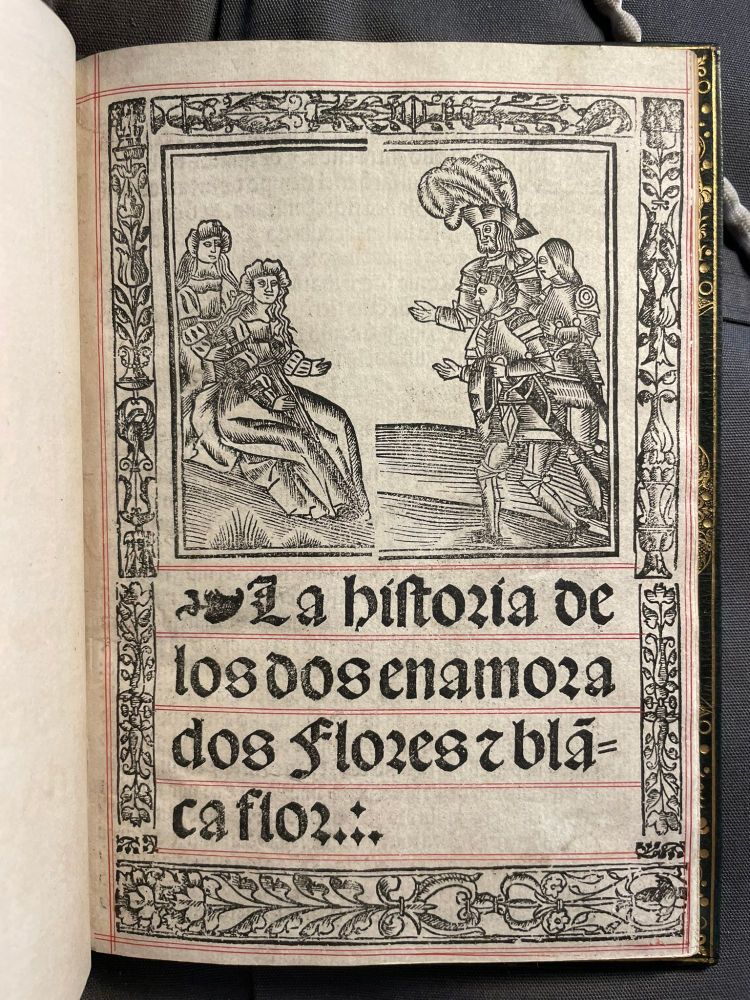 La hiſtoria de
los dos enamora
dos Flores ⁊ blã=
ca flor.:.